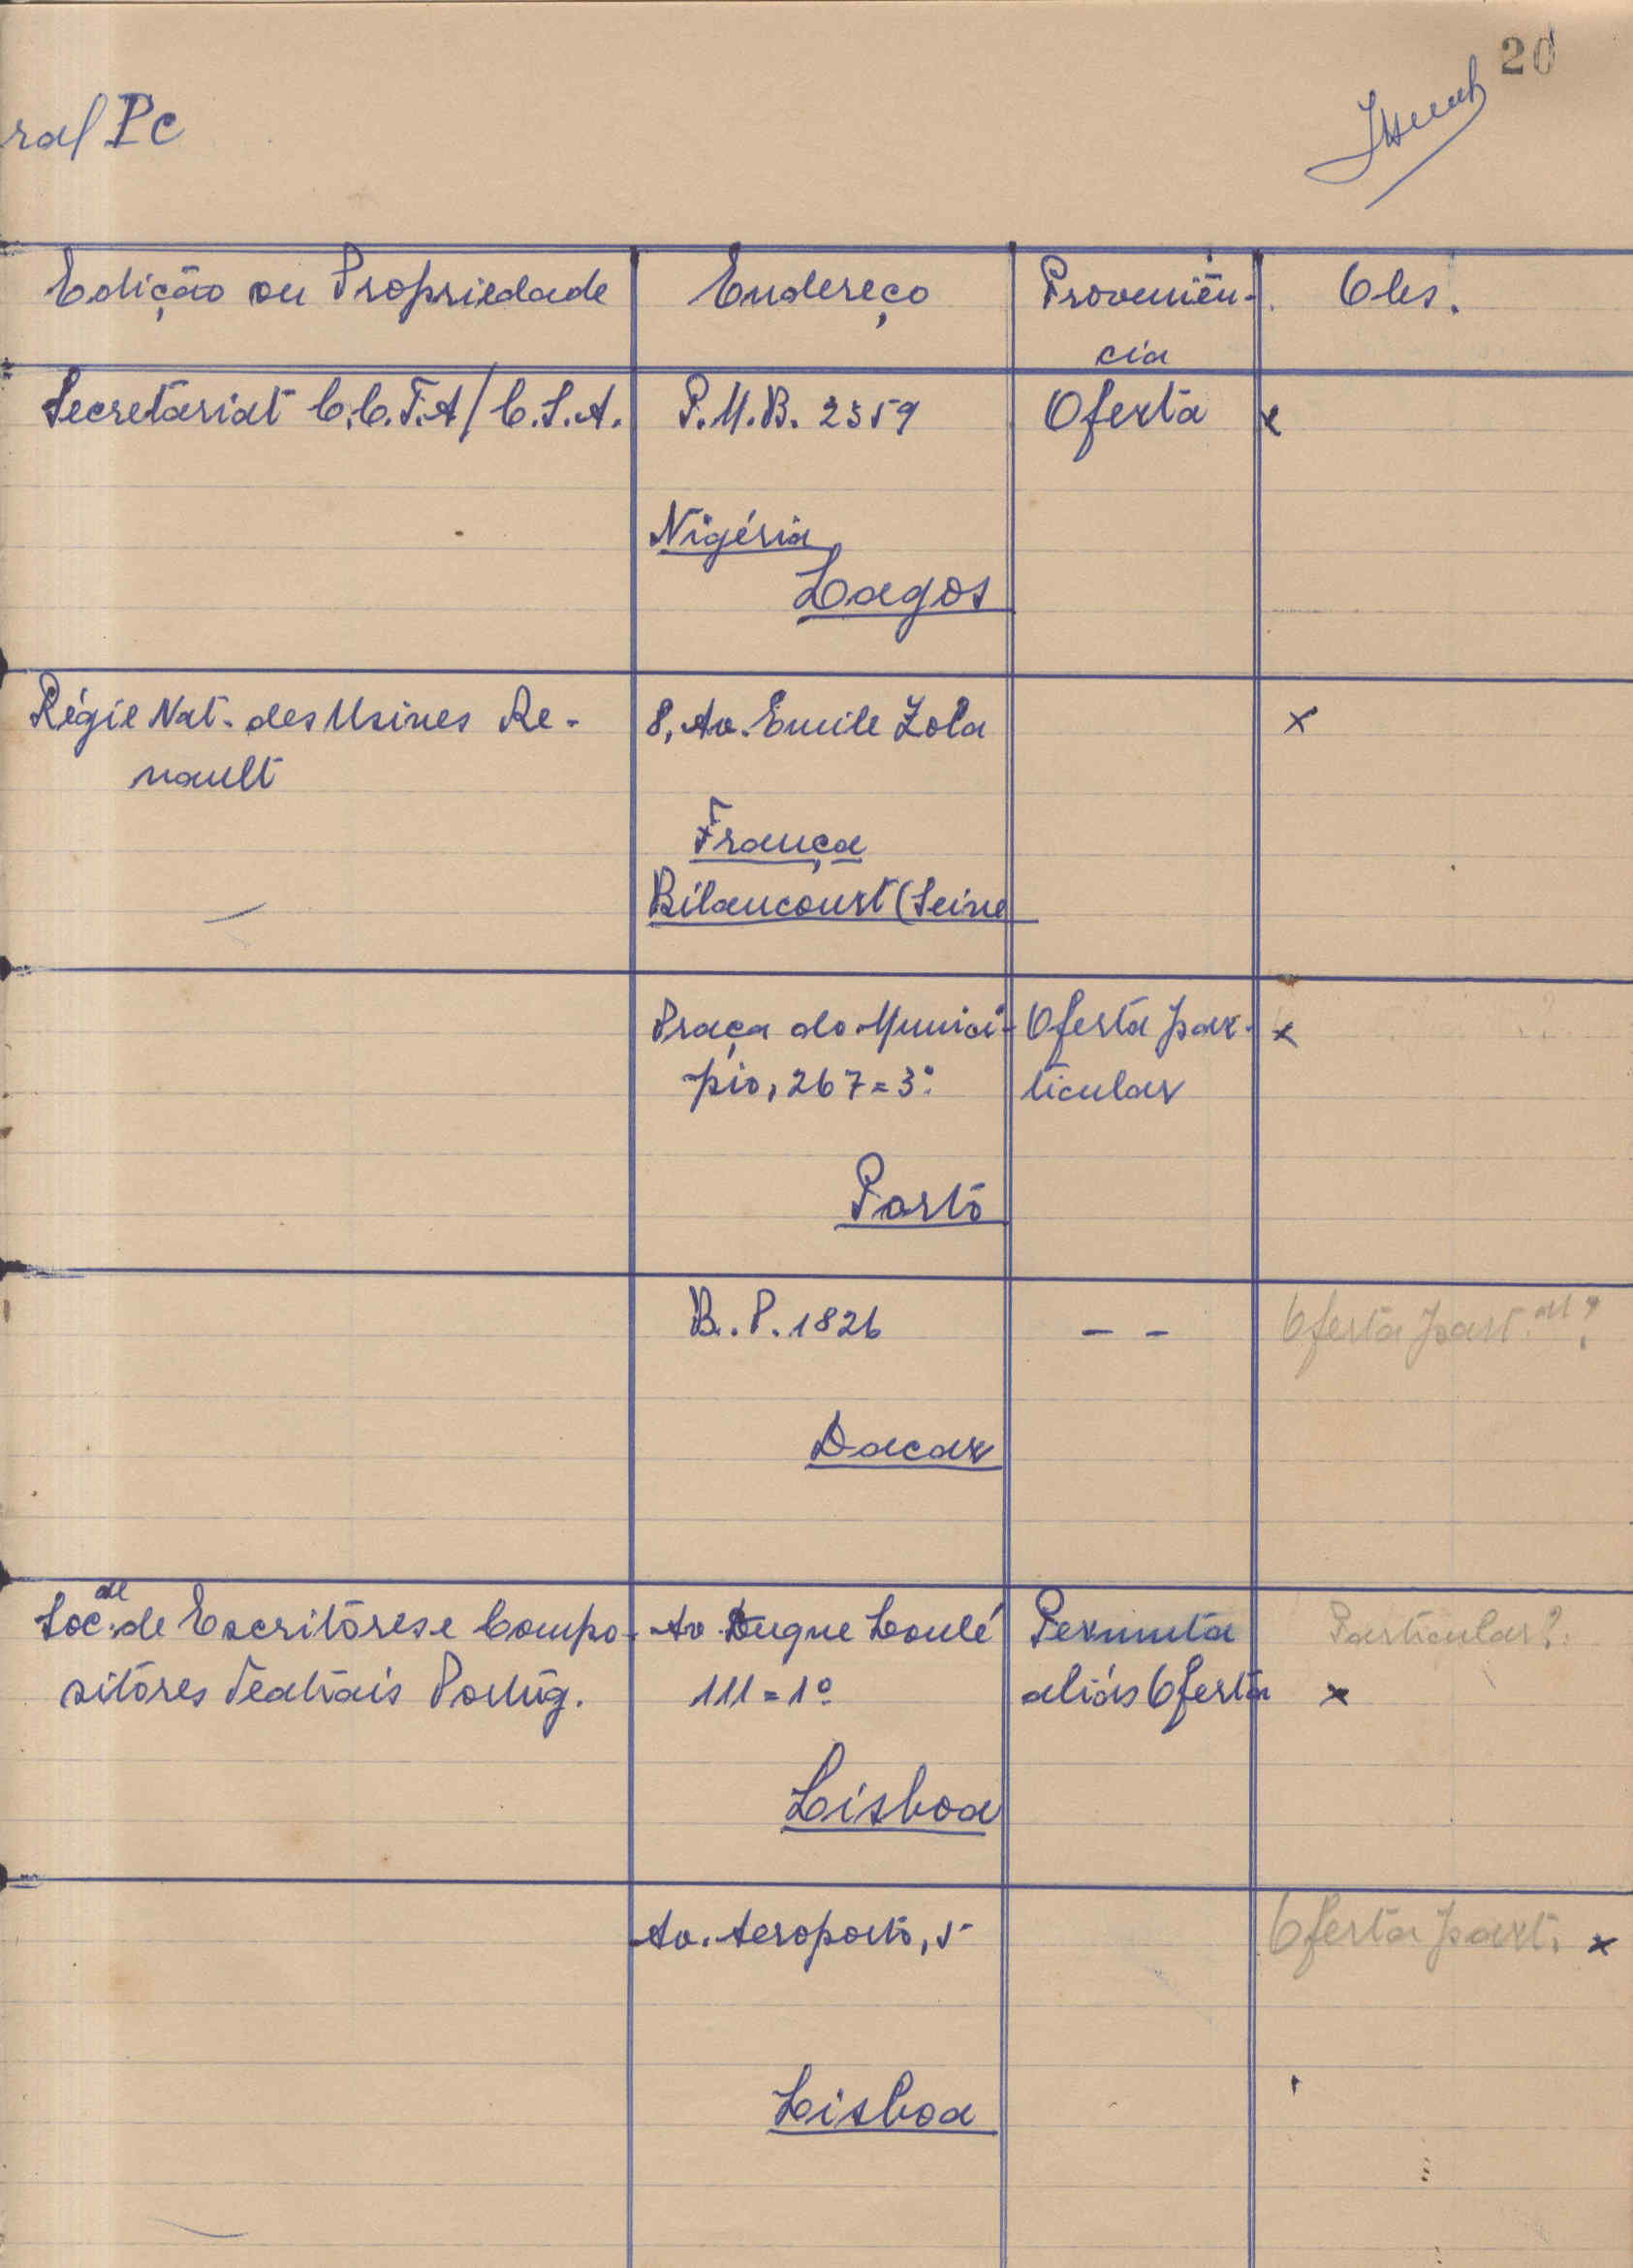 20
ral Pc
Edição ou Propriedade Endereço Proveniên- Obs.
cia
Secretariat C.C.T.A/C.S.A. P.M.B. 2359 Oferta x
Nigéria
Lagos
Régie Nat. des Usines Re- 8, Av. Emile Zola x
nault
França
Bilancourt (Seine
Praça do Munici- Oferta par- x
pio, 267=3º ticular
Porto
B.P. 1826 - - Oferta part.
Dacar
Soc.de de Escritôres e Compo- Av. Duque Loulé Permuta Particular?
sitôres Teatrais Portug. 111=1º aliás Oferta x
Lisboa
Av. Aeroporto, 5 Oferta part. x
Lisboa